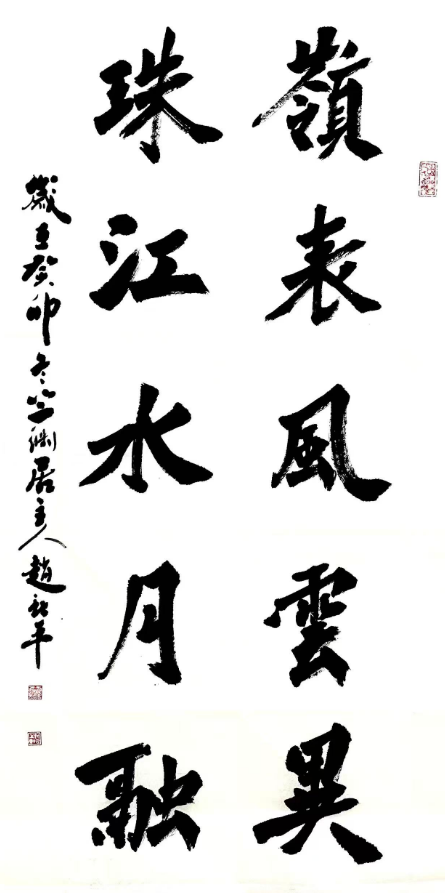 嶺表風雲異
珠江水月融
歲在癸卯冬 淵居主人趙 平